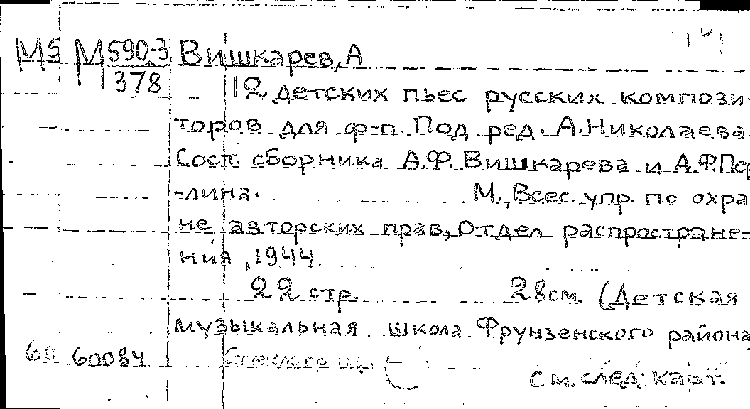 М5 М590-3 Вишкарев, А
378 12 детских пьес русских компози-
торов для ф-п. Под ред. А.Николаева.
Сост. сборника А.Ф.Вишкарева и А.Ф.Пор
-лина. М., Всес. упр. по охра
не авторских прав, Отдел распростране-
ния, 1944.
22 стр. 28см. (Детская
музыкальная школа Фрунзенского района
60084
См. след. карт.